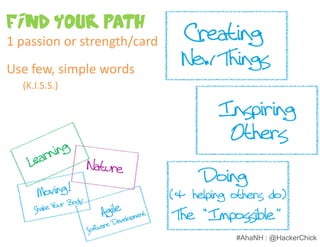 Find Your Path
1 passion or strength/card
Use few, simple words
(K.I.S.S.)
Creating
New Things
Inspiring
Others
Learning
Nature
Moving!
Shake Your Body...
Agile
Software Development
Doing
(& helping others do)
The "Impossible"
#AhaNH : @HackerChick